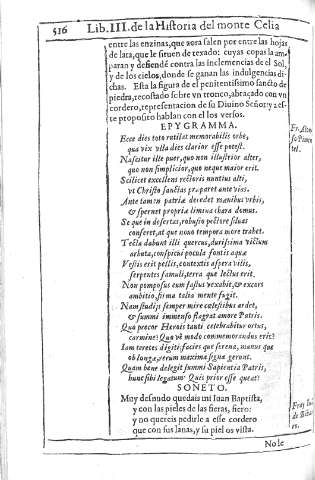 516 Lib. III. de la Historia del monte Celia
entre las enzinas, que aora salen por entre las hojas
de lata, que le siruen de texado: cuyas copas la am
paran y defiendē contra las inclemencias de el Sol,
y de los cielos, donde se ganan las indulgencias di-
chas. Esta la figura de el penitentissimo sancto de
piedra, recostado sobre vn tronco, abraçado con vn
cordero, representacion de su Diuino Señor, y a es-
te proposito hablan con el los versos.
EPYGRAMMA.
Ecce dies toto rutilat memorabilis orbe,
qua vix vlla dies clarior esse potest.
Nascitur ille puer, quo non illustrior alter,
quo non simplicior, quo neque maior erit.
Scilicet excellens rectoris nuntius alti,
vt Christo sanctas præparet ante vias.
Ante tamen patriæ decedet mœnibus vrbis,
& spernet propriæ limina chara domus.
Se que in desertas, robusto pectore siluas
conferet, at que nono tempora more trahet.
Tecta dabunt illi quercus, durissima victum
arbuta, conspicui pocula fontis aquæ
Vestis erit pellis, contextis aspera villis,
serpentes famuli, terra que lectus erit.
Non pomposus eum fastus vexabit, & excors
ambitio, firma talio mente fugit.
Nam studijs semper mire cælestibus ardet,
& summi immenso flagrat amore Patris.
Qua precor Herois tanti celebrabitur ortus,
carmine? Quo vè modo commemorandus erit?
Iam teretes digiti: facies que serena, manus que
oblongæ, rerum maxima signa gerunt.
Quam bene delegit summi Sapientia Patris,
hunc sibi legatum. Quis prior esse queat?
SONETO.
Muy desnudo quedais mi Iuan Baptista,
y con las pieles de las fieras, fiero:
y no quereis pedirle a esse cordero
que con sus lanas, y su piel os vista.
Nole